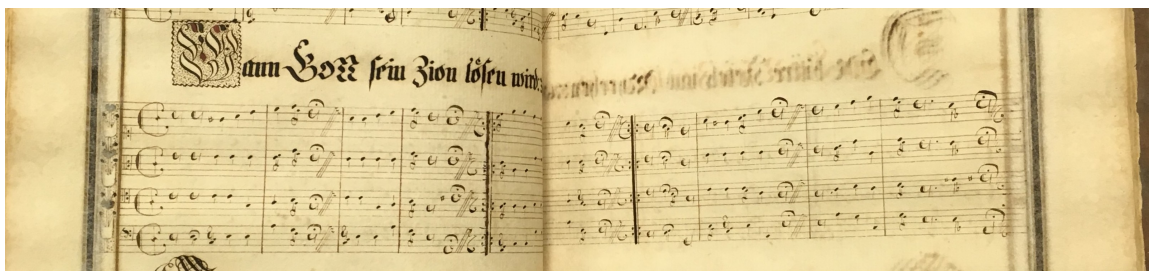 Wann GOTT sein Zion lösen wird